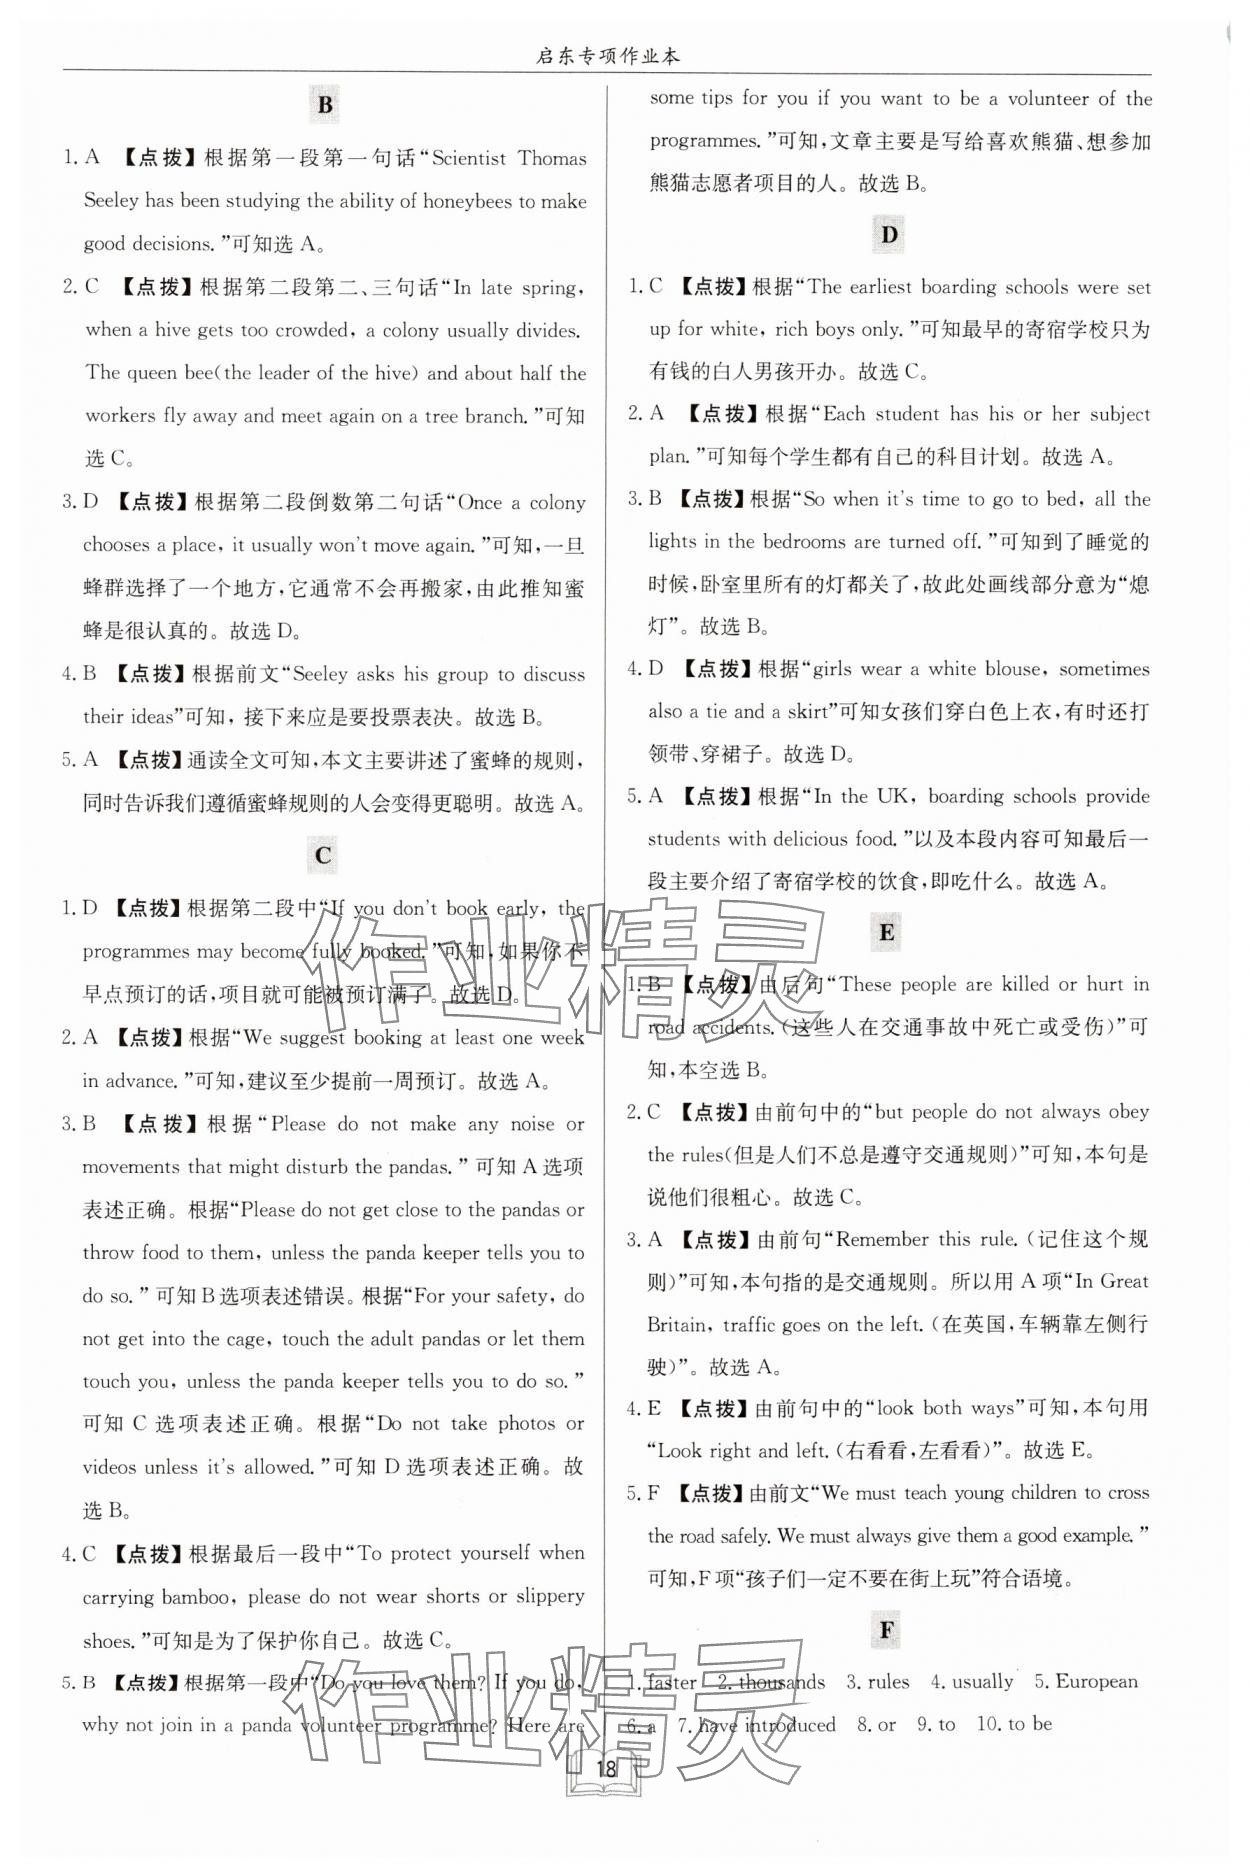 启东专项作业本
B
1. A 【点拨】根据第一段第一句话“Scientist Thomas
Seeley has been studying the ability of honeybees to make
good decisions. ”可知选 A。
2. C 【点拨】根据第二段第二、三句话“In late spring,
when a hive gets too crowded, a colony usually divides.
The queen bee(the leader of the hive) and about half the
workers fly away and meet again on a tree branch. ”可知
选 C。
3. D 【点拨】根据第二段倒数第二句话“Once a colony
chooses a place, it usually won't move again. ”可知,一旦
蜂群选择了一个地方,它通常不会再搬家,由此推知蜜
蜂是很认真的。故选 D。
4. B 【点拨】根据前文“Seeley asks his group to discuss
their ideas”可知,接下来应是要投票表决。故选 B。
5. A 【点拨】通读全文可知,本文主要讲述了蜜蜂的规则,
同时告诉我们遵循蜜蜂规则的人会变得更聪明。故选 A。
C
1. D 【点拨】根据第二段中“If you don't book early, the
programmes may become fully booked. ”可知,如果你不
早点预订的话,项目就可能被预订满了。故选 D。
2. A 【点拨】根据“We suggest booking at least one week
in advance. ”可知,建议至少提前一周预订。故选 A。
3. B 【点拨】根据“Please do not make any noise or
movements that might disturb the pandas. ”可知 A 选项
表述正确。根据“Please do not get close to the pandas or
throw food to them, unless the panda keeper tells you to
do so. ”可知 B 选项表述错误。根据“For your safety, do
not get into the cage, touch the adult pandas or let them
touch you, unless the panda keeper tells you to do so. ”
可知 C 选项表述正确。根据“Do not take photos or
videos unless it's allowed. ”可知 D 选项表述正确。故
选 B。
4. C 【点拨】根据最后一段中“To protect yourself when
carrying bamboo, please do not wear shorts or slippery
shoes. ”可知是为了保护你自己。故选 C。
5. B 【点拨】根据第一段中“Do you love them? If you do,
why not join in a panda volunteer programme? Here are
some tips for you if you want to be a volunteer of the
programmes. ”可知,文章主要是写给喜欢熊猫、想参加
熊猫志愿者项目的人。故选 B。
D
1. C 【点拨】根据“The earliest boarding schools were set
up for white, rich boys only. ”可知最早的寄宿学校只为
有钱的白人男孩开办。故选 C。
2. A 【点拨】根据“Each student has his or her subject
plan. ”可知每个学生都有自己的科目计划。故选 A。
3. B 【点拨】根据“So when it's time to go to bed, all the
lights in the bedrooms are turned off. ”可知到了睡觉的
时候,卧室里所有的灯都关了,故此处画线部分意为“熄
灯”。故选 B。
4. D 【点拨】根据“girls wear a white blouse, sometimes
also a tie and a skirt”可知女孩们穿白色上衣,有时还打
领带、穿裙子。故选 D。
5. A 【点拨】根据“In the UK, boarding schools provide
students with delicious food. ”以及本段内容可知最后一
段主要介绍了寄宿学校的饮食,即吃什么。故选 A。
E
1. B 【点拨】由后句“These people are killed or hurt in
road accidents. (这些人在交通事故中死亡或受伤)”可
知,本空选 B。
2. C 【点拨】由前句中的“but people do not always obey
the rules(但是人们不总是遵守交通规则)”可知,本句是
说他们很粗心。故选 C。
3. A 【点拨】由前句“Remember this rule. (记住这个规
则)”可知,本句指的是交通规则。所以用 A 项“In Great
Britain, traffic goes on the left. (在英国,车辆靠左侧行
驶)”。故选 A。
4. E 【点拨】由前句中的“look both ways”可知,本句用
“Look right and left. (右看看,左看看)”。故选 E。
5. F 【点拨】由前文“We must teach young children to cross
the road safely. We must always give them a good example. ”
可知,F 项“孩子们一定不要在街上玩”符合语境。
F
1. faster 2. thousands 3. rules 4. usually 5. European
6. a 7. have introduced 8. or 9. to 10. to be
18
作业精灵
作业精灵